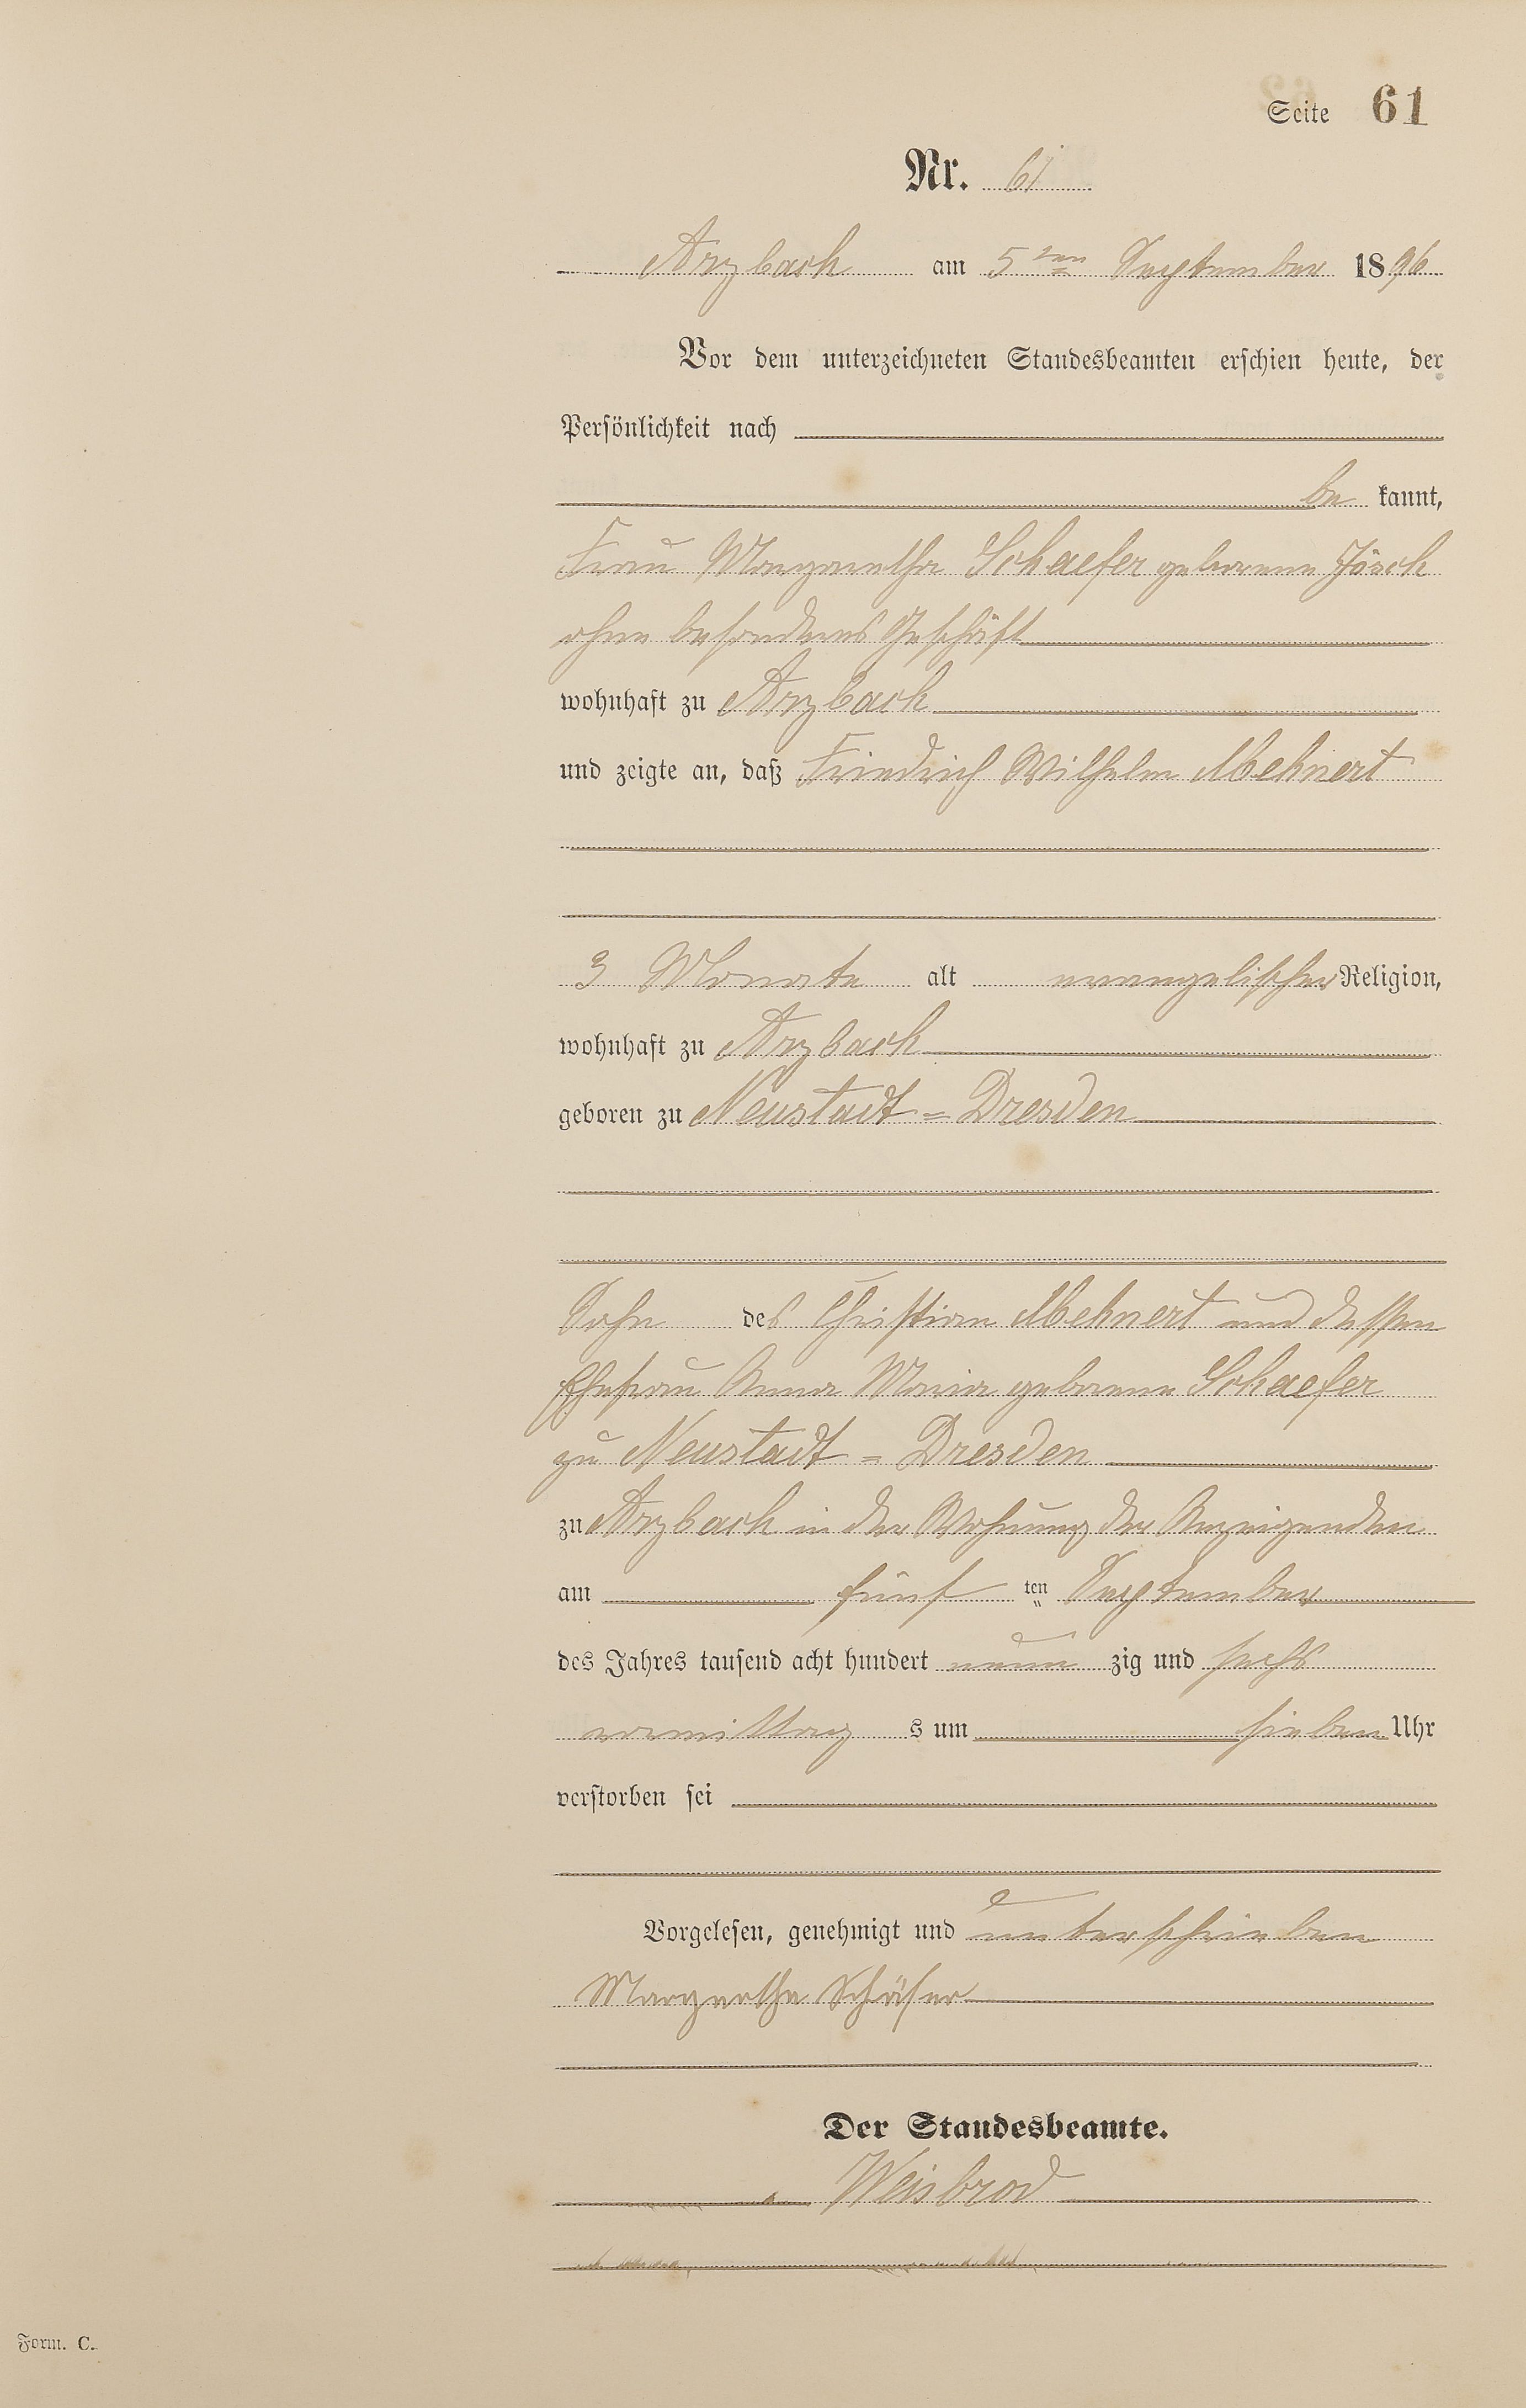 Seite 61
Nr. 61
Arzbach am 5ten September 1896
Vor dem unterzeichneten Standesbeamten erschien heute, der
Persönlichkeit nach
be kannt,
Frau Margaretha Schaefer geborene Jösch
ohne besonderes Geschäft
wohnhaft zu Arzbach
und zeigte an, daß Friedrich Wilhelm Mehnert
3 Monate alt evangelischer Religion,
wohnhaft zu Arzbach
geboren zu Neustadt=Dresden
Sohn des Christian Mehnert und dessen
Ehefrau Anna Maria geborene Schaefer
zu Neustadt=Dresden
zu Arzbach in der Wohnung der Anzeigenden
am fünf ten September
des Jahres tausend acht hundert neun zig und sechs
vormittag s um sieben Uhr
verstorben sei
Vorgelesen, genehmigt und unterschrieben
Margrethe Schäfer
Der Standesbeamte.
Weisbrod
Form. C.